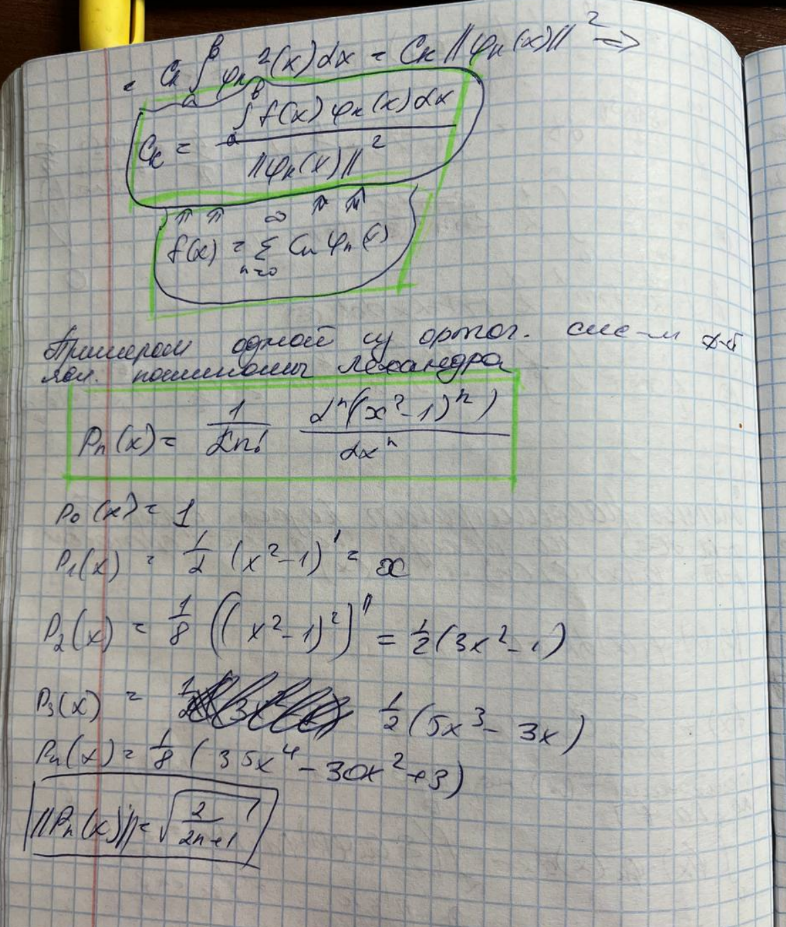 = Cₙ ∫ₐᵇ φₙ²(x)dx = Cₙ ||φₙ(x)||² ⇒
Cₖ = ∫ₐᵇ f(x) φₙ(x)dx / ||φₙ(x)||²
π π ∞ π π
f(x) = Σ Cₙ φₙ(x)
n=0
Примером одной из ортог. сис-м ф-й
явл. полиномы Лежандра
Pₙ(x) = 1/(2ⁿn!) dⁿ((x²-1)ⁿ)/dxⁿ
P₀(x) = 1
P₁(x) = 1/2 (x²-1)' = x
P₂(x) = 1/8 ((x²-1)²)'' = 1/2(3x²-1)
P₃(x) = 1/2(5x³-3x)
P₄(x) = 1/8 (35x⁴-30x²+3)
||Pₙ(x)|| = √(2/(2n+1))